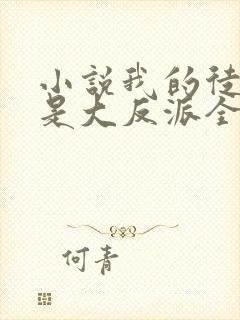 小説我的徒
是大反派全
何青